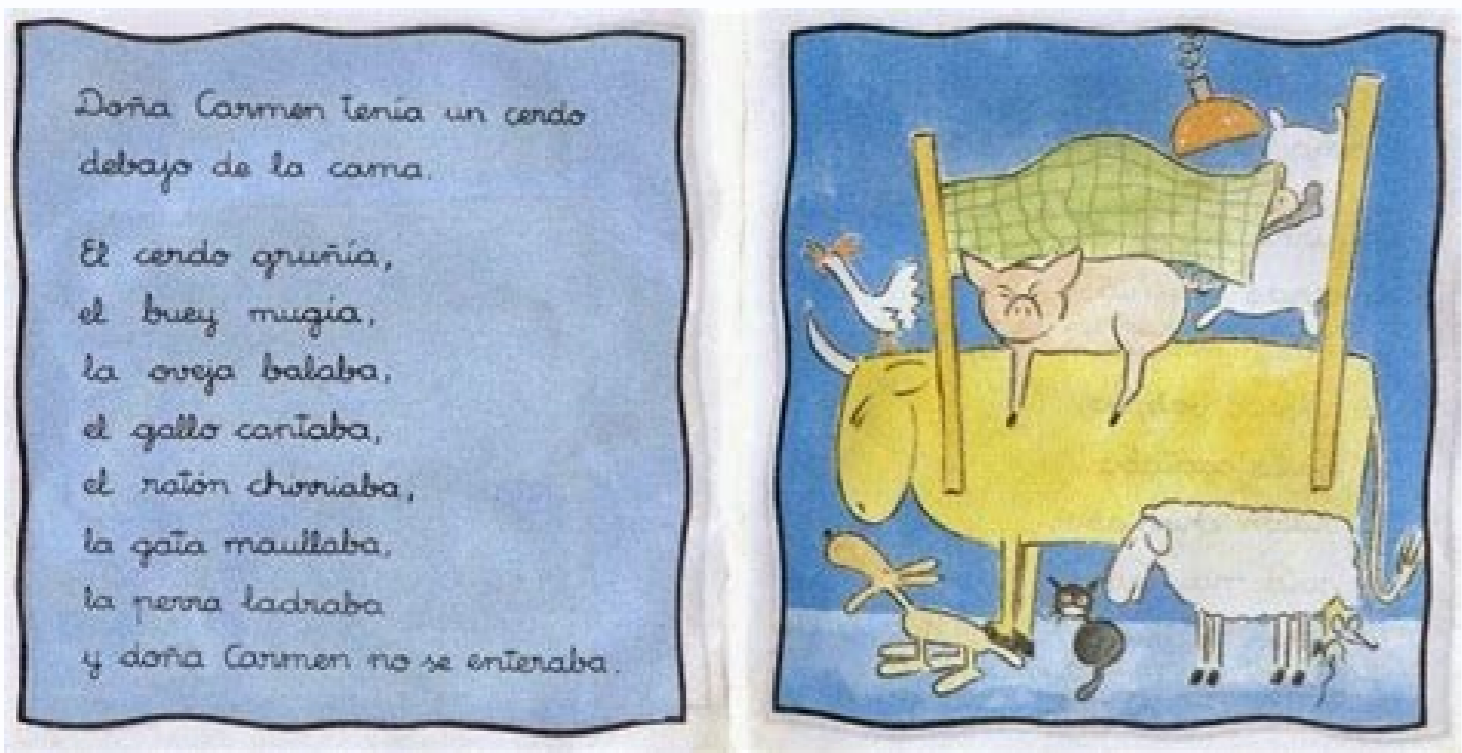 Doña Carmen tenía un cerdo
debajo de la cama.
El cerdo gruñía,
el buey mugía,
la oveja balaba,
el gallo cantaba,
el ratón chirriaba,
la gata maullaba,
la perra ladraba
y doña Carmen no se enteraba.